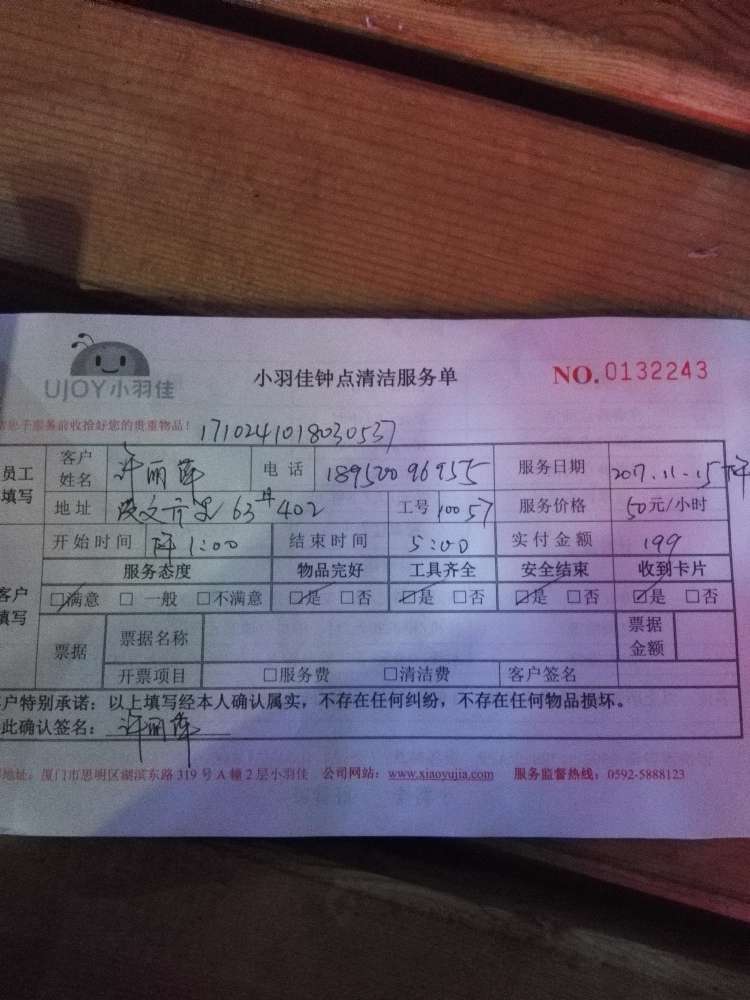 UJOY小羽佳
小羽佳钟点清洁服务单
NO.0132243
服务前收拾好您的贵重物品！
1710241018030537
员工填写 客户姓名 许丽萍 电话 18950096955 服务日期 2017.11.15
地址 63 402 工号 10057 服务价格 50元/小时
开始时间 1:00 结束时间 5:00 实付金额 199
服务态度 物品完好 工具齐全 安全结束 收到卡片
客户填写 □满意 □一般 □不满意 □是 □否 □是 □否 □是 □否 □是 □否
票据 票据名称 票据金额
开票项目 □服务费 □清洁费 客户签名
户特别承诺：以上填写经本人确认属实，不存在任何纠纷，不存在任何物品损坏。
此确认签名：许丽萍
地址：厦门市思明区湖滨东路319号A幢2层小羽佳 公司网站：www.xiaoyujia.com 服务监督热线：0592-5888123